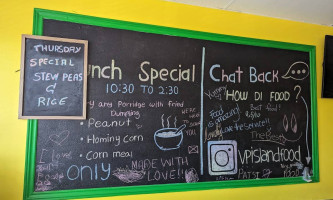 THURSDAY
SPECIAL
STEW PEAS
&
RICE
unch Special
10:30 TO 2:30
any Porridge with fried
Dumpling
• Peanut
• Hominy corn
• Corn meal
only
MADE WITH
LOVE!!
Chat Back
HOW DI FOOD ?
Yummy
Food
amazing
Best food!!
Love the service!!
The Best
vpislandfood